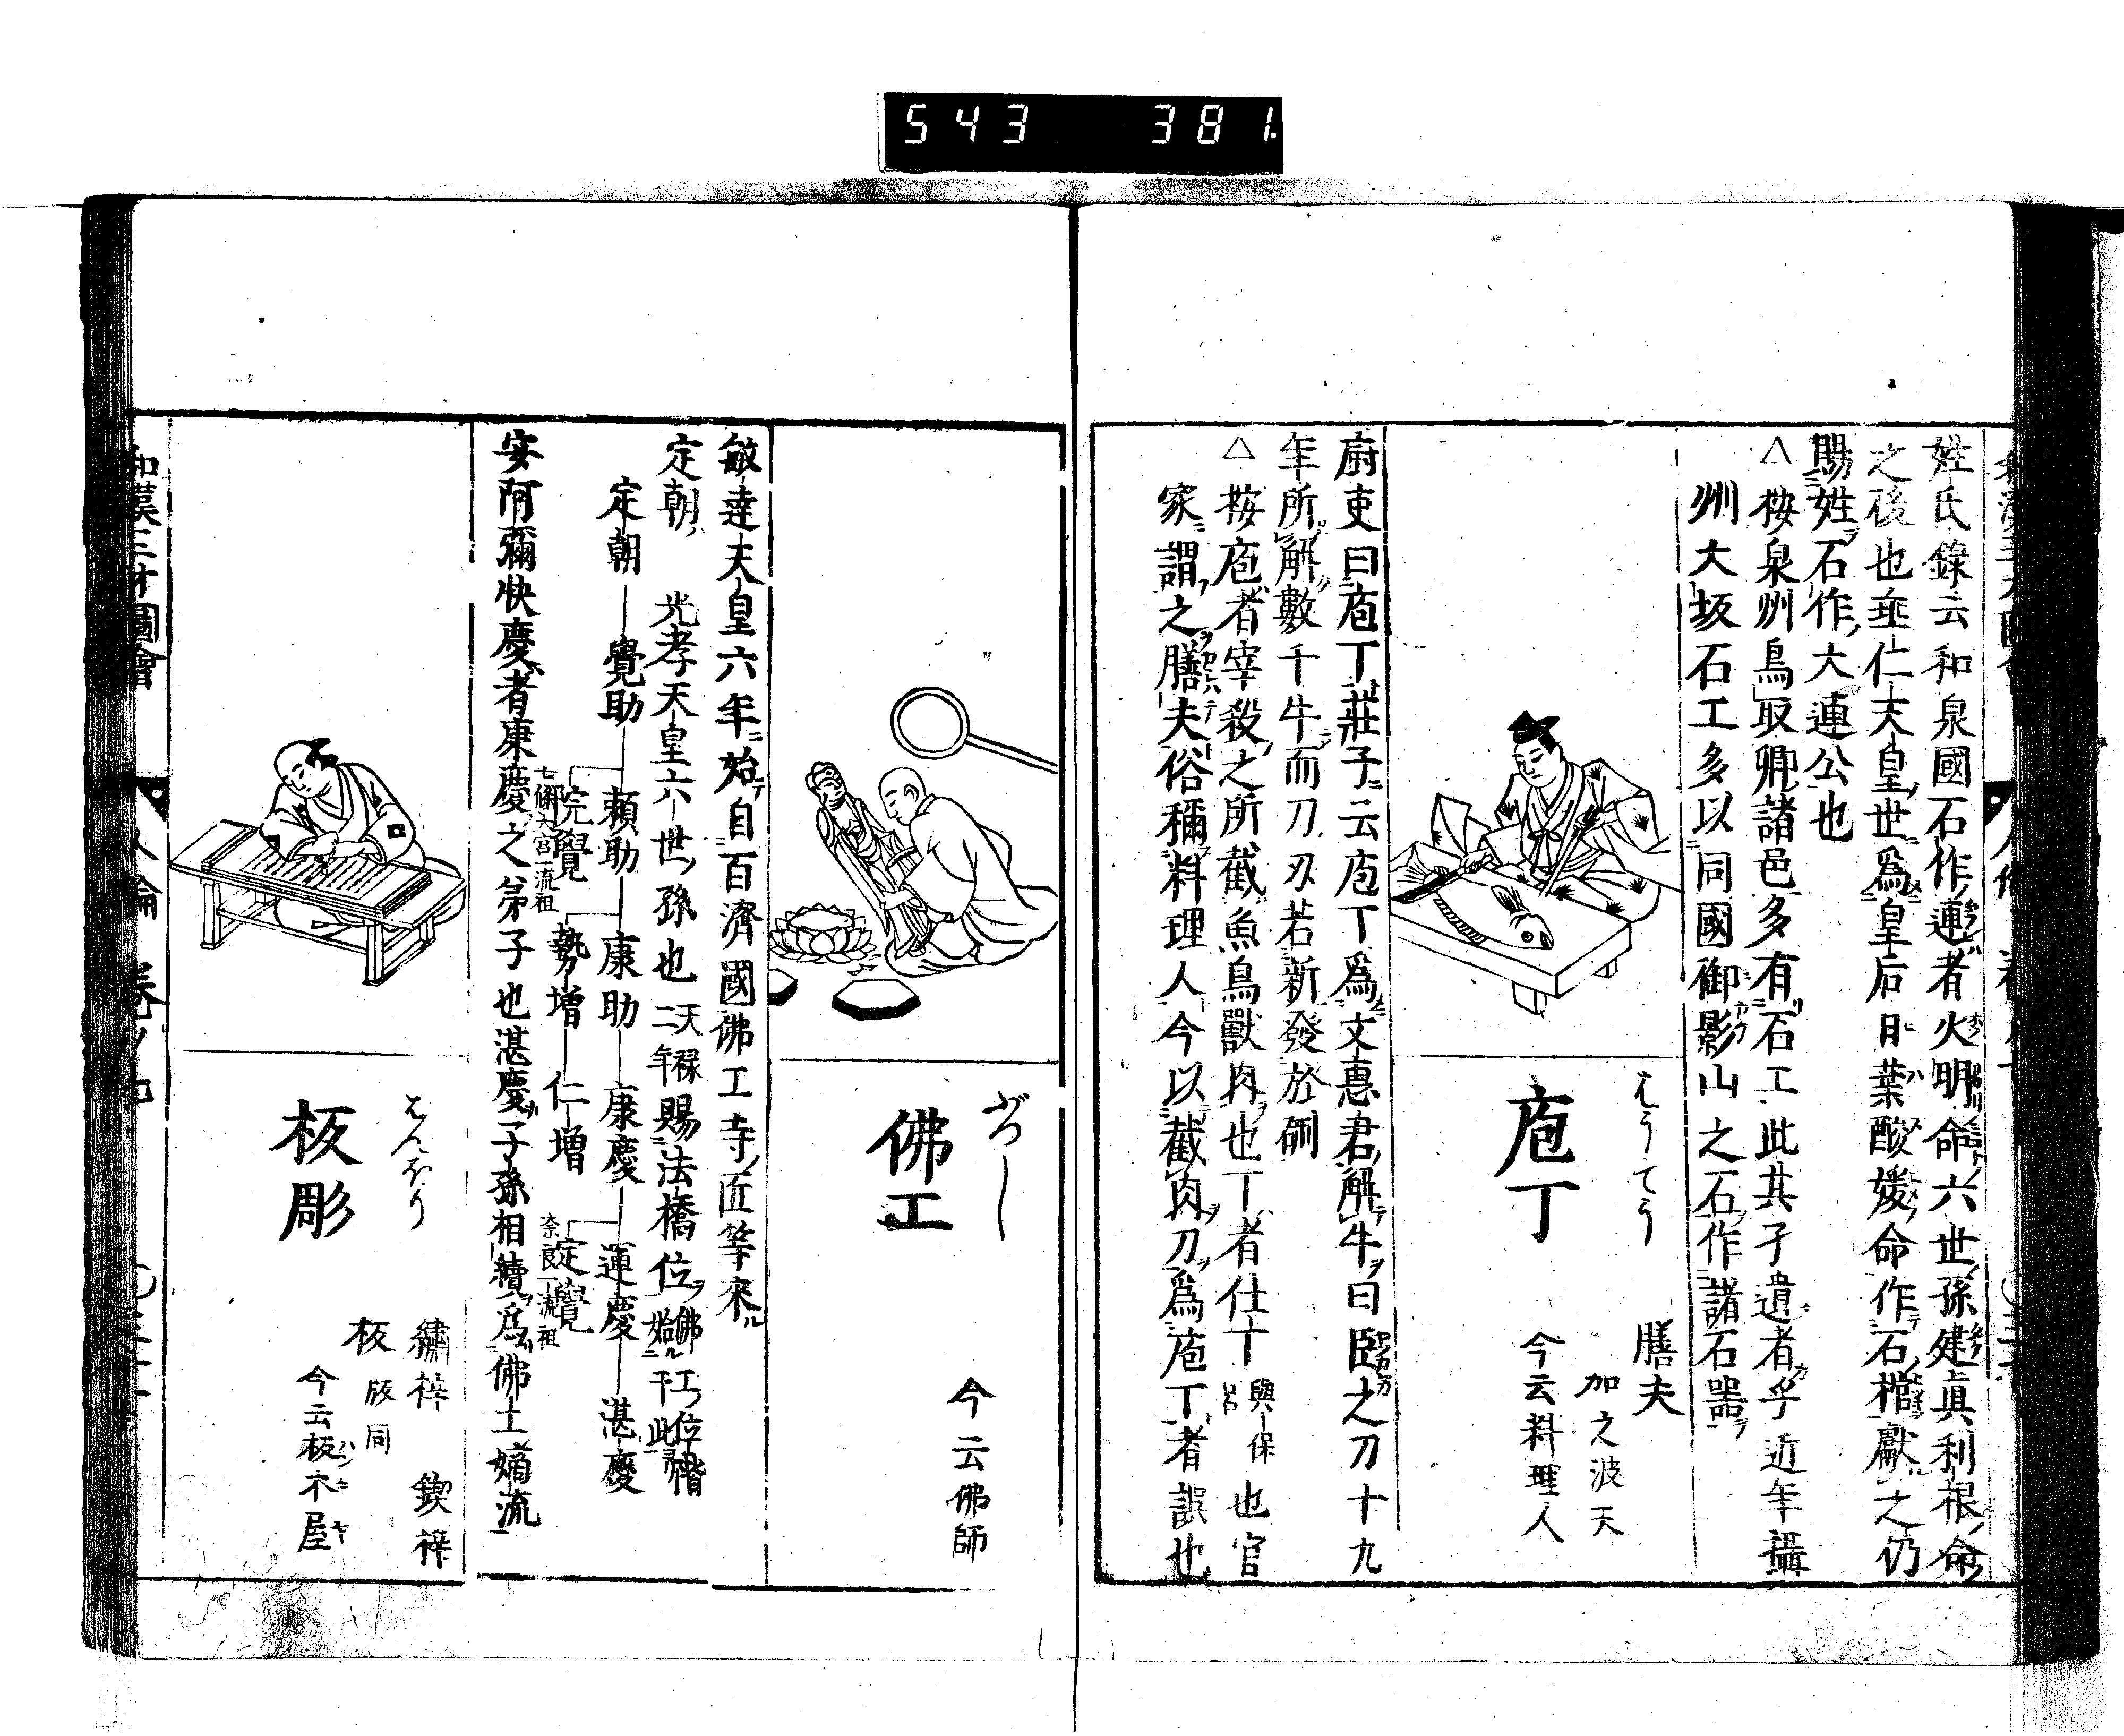 543 381
姓氏錄云和泉國石作連者火明命六世孫建眞利根命
之後也垂仁天皇世爲皇后日葉酸媛命作石棺獻之仍
賜姓石作大連公也
△按泉州鳥取卿諸邑多有石工此其孑遺者乎近年攝
州大坂石工多以同國御影山之石作諸石噐
はうてう
庖丁
膳夫
加之波天
今云料理人
廚吏曰庖丁莊子云庖丁爲文惠君解牛曰臣之刀十九
年所解數千牛而刀刃若新發於硎
△按庖者宰殺之所截魚鳥獸肉也丁者仕丁與保呂也官
家謂之膳夫俗稱料理人今以截肉刀爲庖丁者誤也
ぶつし
佛工
今云佛師
敏達天皇六年始自百濟國佛工寺匠等來
定朝 光孝天皇六世孫也天禄二年賜法橋位佛工位階始于此
定朝―覺助―頼助―康助―康慶―運慶―湛慶
院覺 勢増―仁増 定覺
七條大宮流祖 奈良流祖
安阿彌快慶者康慶之弟子也湛慶子孫相續爲佛工嫡流
はんほり
板彫
繡梓 鍥梓
板 版同
今云板木屋
和漢三才圖會 人倫 卷ノ七